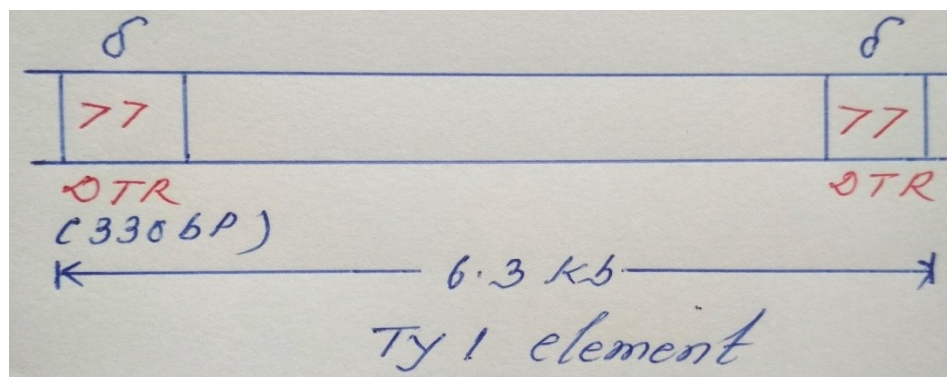 δ δ
>> >>
DTR DTR
(330bP)
6.3 Kb
Ty 1 element